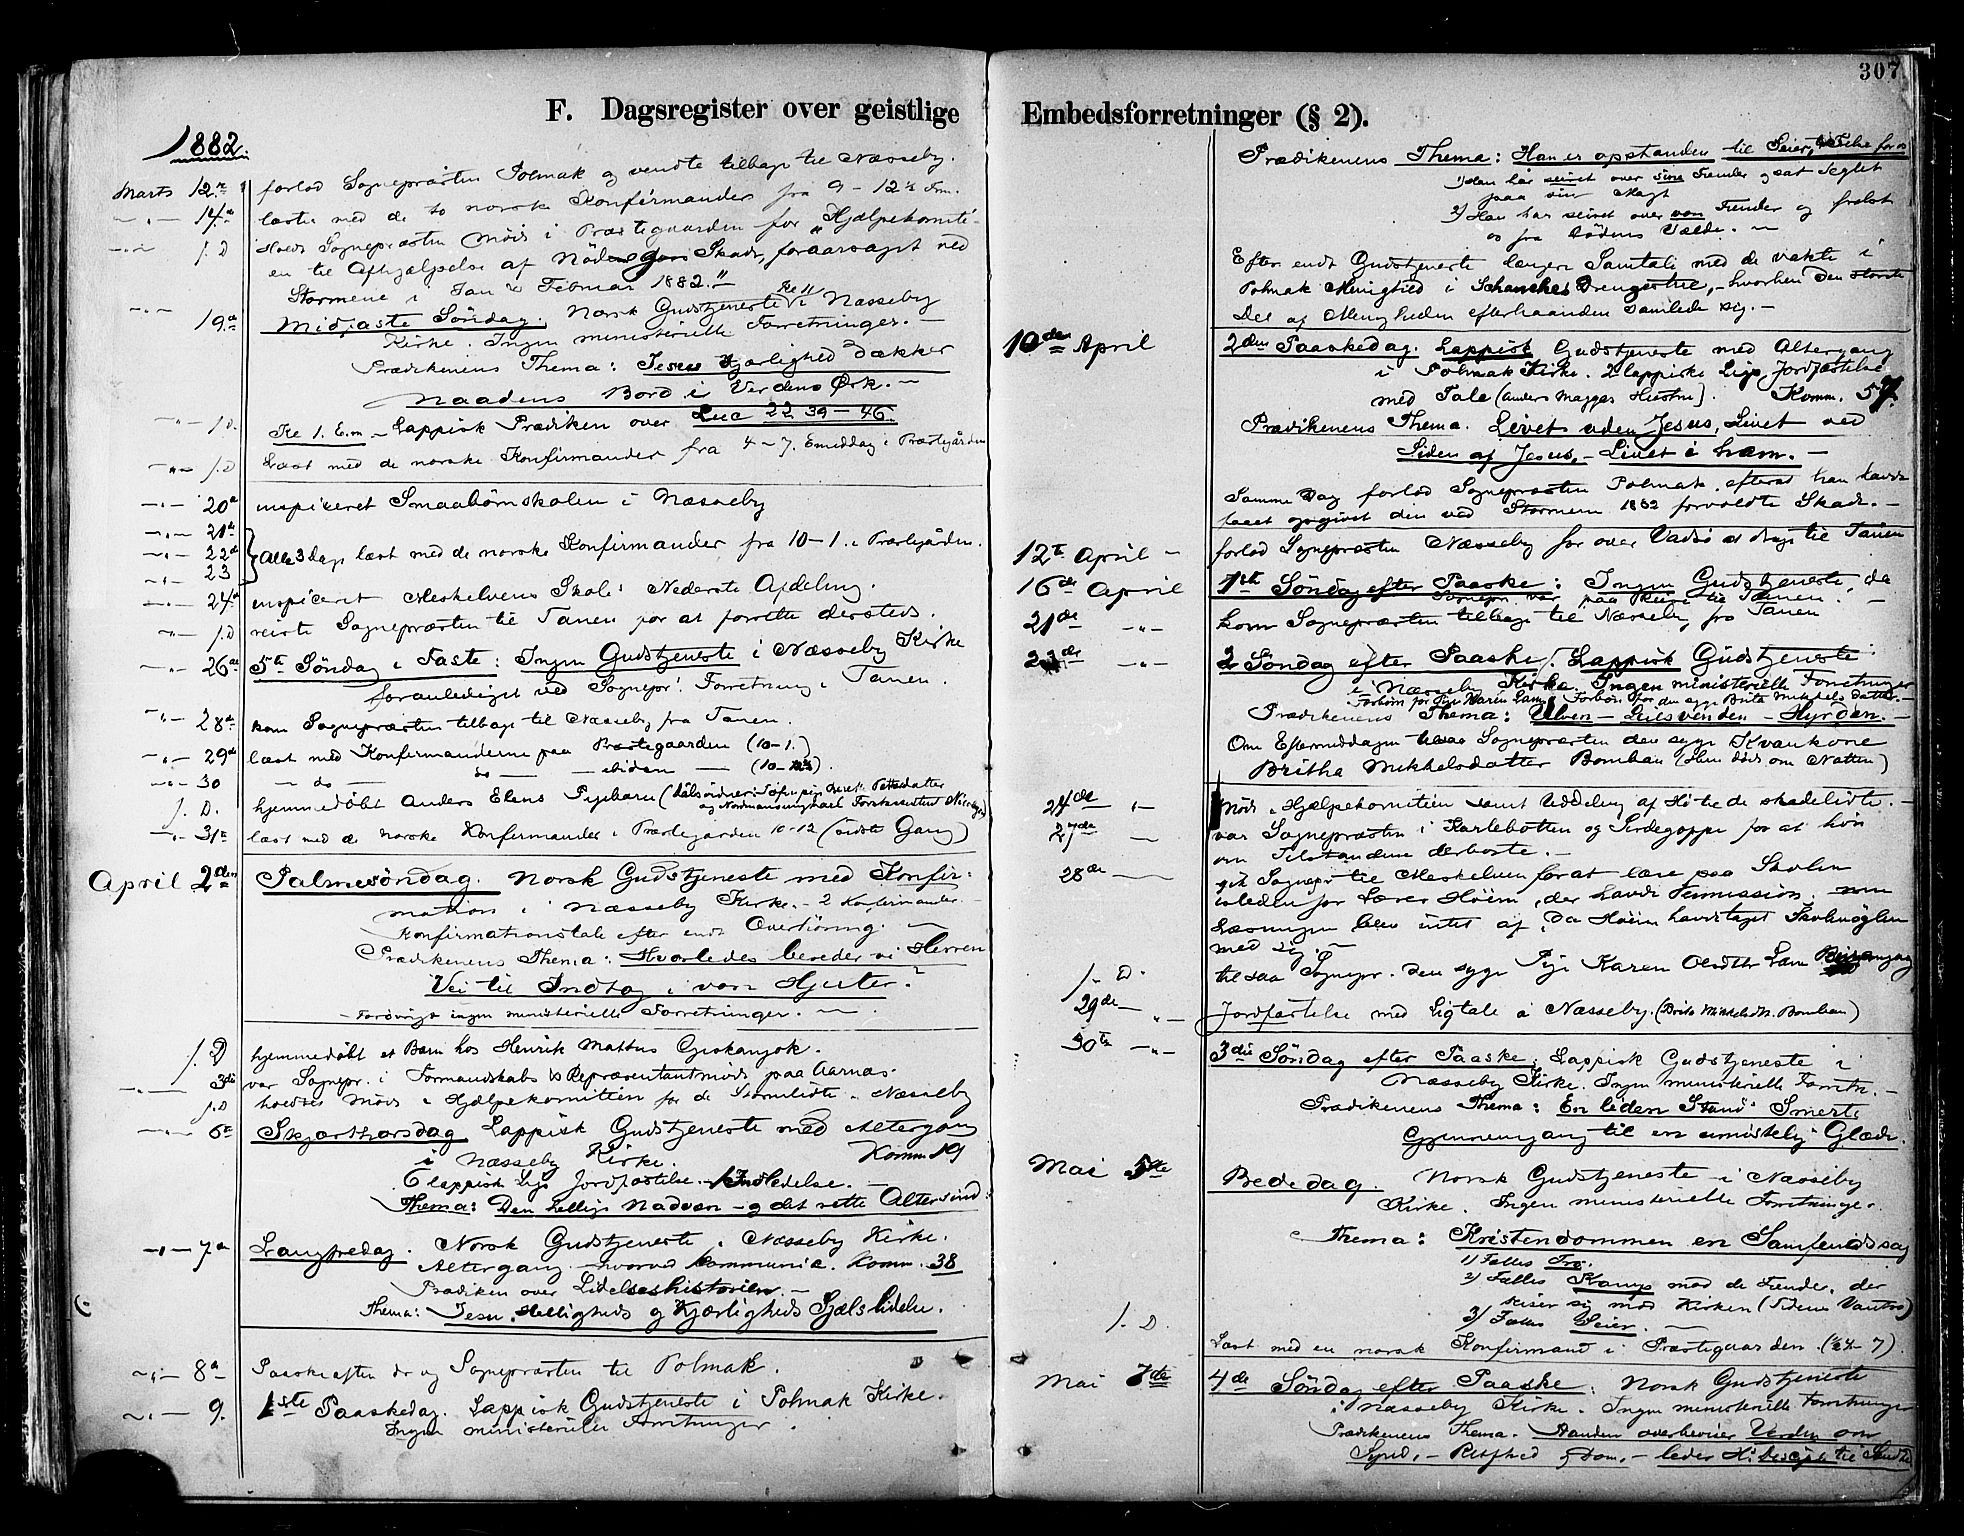 307
F. Dagsregister over geistlige Embedsforretninger (§ 2).
1882.
Marts 12te forlod Sognepræsten Polmak og vendte tilbage til Næsseby.
14de læste med de to norske Konfirmander fra 9 - 12½ Fm.
s. D. Sognepræsten Møde i Præstegaarden for "Hjælpekomité
en til Afhjælpelse af Skade, foraarsaget ved
Stormene i Jan & Februar 1882."
19de Midfaste Søndag. Norsk Gudstjeneste i Næsseby
Kirke. Ingen ministerielle Forretninger.
Prædikenens Thema: Jesu Kjærlighed dækker
Naadens Bord i Verdens Ørk.
s. D. Kl. 1. E.m. Lappisk Prædiken over Luc 22 39-46.
s. D. Læst med de norske Konfirmander fra 4-7. Emiddag i Præstegården
20de inspiceret Smaabørnskolen i Næsseby
21de
22de } Alle 3 dage læst med de norske Konfirmander fra 10-1. i Præstegården.
23
24de inspiceret Meskelvens Skole: Nederste Afdeling.
s. D. reiste Sognepræsten til Tanen for at forrette dersteds.
26de 5te Søndag i Faste: Ingen Gudstjeneste i Næsseby Kirke
foranlediget ved Sognepr. Forretning i Tanen.
28de kom Sognepræsten tilbage til Næsseby fra Tanen.
29de læst med Konfirmanderne paa Præstegaarden (10-1.)
30 — do — do — ibidem —
s. D. hjemmedøbt Anders Elens Pigebarn
31te læst med de norske Konfirmander i Præstegården 10-12 (sidste Gang)
April 2den Palmesøndag. Norsk Gudstjeneste med Konfir-
mation i Næsseby Kirke. - 2 Konfirmander
Konfirmationstale efter endt Overhøring.
Prædikenens Thema: Hvorledes bereder vi Herren
Vei til Indtog i vore Hjerter?
Forøvrigt ingen ministerielle Forretninger.
s. D. hjemmedøbt et Barn hos Henrik Mathis
3die var Sognepr. i Formandskabs & Repræsentantmøde paa Aarnæs.
s. D. holdtes Møde i Hjælpekomitéen for de Stormlidte i Næsseby
6te Skjærthorsdag Lappisk Gudstjeneste med Altergang
i Næsseby Kirke. Komm. 19
lappisk Ligs Jordfæstelse. Indledelse.
Thema: Den hellige Nadver - og det rette Altersind.
7de Langfredag. Norsk Gudstjeneste i Næsseby Kirke.
Altergang Komm. 38
Prædiken over Lidelseshistorien.
Thema: Jesu Helligheds og Kjærligheds Sjælslidelse.
8de Paaskeaften drog Sognepræsten til Polmak.
9. 1ste Paaskedag. Lappisk Gudstjeneste i Polmak Kirke.
Ingen ministerielle Forretninger.
Prædikenens Thema: Han er opstanden til Seier,
1) Han har seiret over sine Fiender og sat Seglet
paa sin Magt
2) Han har seiret over vore Fiender og frelst
os fra Dødens Vælde.
Efter endt Gudstjeneste længere Samtale med de vakte i
Polmak Menighed i Schanches Drengestue, - hvorhen den største
Del af Menigheden efterhaanden samlede sig.
10de April 2den Paaskedag. Lappisk Gudstjeneste med Altergang
i Polmak Kirke. 2 lappiske Ligs Jordfæstelse
med Tale (Anders Magges Hustru). Komm. 57.
Prædikenens Thema. Livet uden Jesus, Livet ved
Siden af Jesus, - Livet i ham.
Samme Dag forlod Sognepræsten Polmak, efterat han havde
faaet opgivet den ved Stormen 1882 forvoldte Skade.
12te April forlod Sognepræsten Næsseby for over Vadsø at drage til Tanen
16de April 1ste Søndag efter Paaske: Ingen Gudstjeneste, da
Sognepr. var paa Reise til Tanen.
21de kom Sognepræsten tilbage til Næsseby fra Tanen
23de 2 Søndag efter Paaske. Lappisk Gudstjeneste
i Næsseby Kirke. Ingen ministerielle Forretninger
Forbøn for Pige Karen Forbøn for den syge Brita Mikkelsdatter
Prædikenens Thema: Ulven - Leiesvenden - Hyrden.
Om Eftermiddagen tilsaa Sognepræsten den syge Kvænkone
Britha Mikkelsdatter Bomban (Hun døde om Natten)
24de Møde i Hjælpekomitéen samt Uddeling af Hø til de skadelidte.
27de var Sognepræsten i Karlebotten og Sirdegoppe for at høre
om Tilstandene derborte.
28de gik Sognepr til Meskelven for at læse paa Skolen
isteden for Lærer Høiem, der havde Permission, men
Læsningen blev intet af, da Høiem havde taget Skolenøglen
med sig.
s. D. tilsaa Sognepr. den syge Pige Karen Olsdtr
29de Jordfæstelse med Ligtale i Næsseby. (Brita Mikkelsdtr. Bomban)
30te 3die Søndag efter Paaske: Lappisk Gudstjeneste i
Næsseby Kirke. Ingen ministerielle Forretn.
Prædikenens Thema: En liden Stund's Smerte
Gjennemgang til en umistelig Glæde.
Mai 5te Bededag. Norsk Gudstjeneste i Næsseby
Kirke. Ingen ministerielle Forretninger.
Thema: Kristendommen en Samfundssag
1) Fælles Tro.
2) Fælles Kamp mod de Fiender, der
reiser sig mod Kirken (Tidens Vantro)
3) Fælles Seier.
s. D. Læst med en norsk Konfirmand i Præstegaarden
Mai 7de 4de Søndag efter Paaske: Norsk Gudstjeneste
i Næsseby Kirke. Ingen ministerielle Forretninger
Prædikenens Thema. Aanden overbeviser Verden om
Synd, - Retfhed og Dom, - leder H. Disciple til